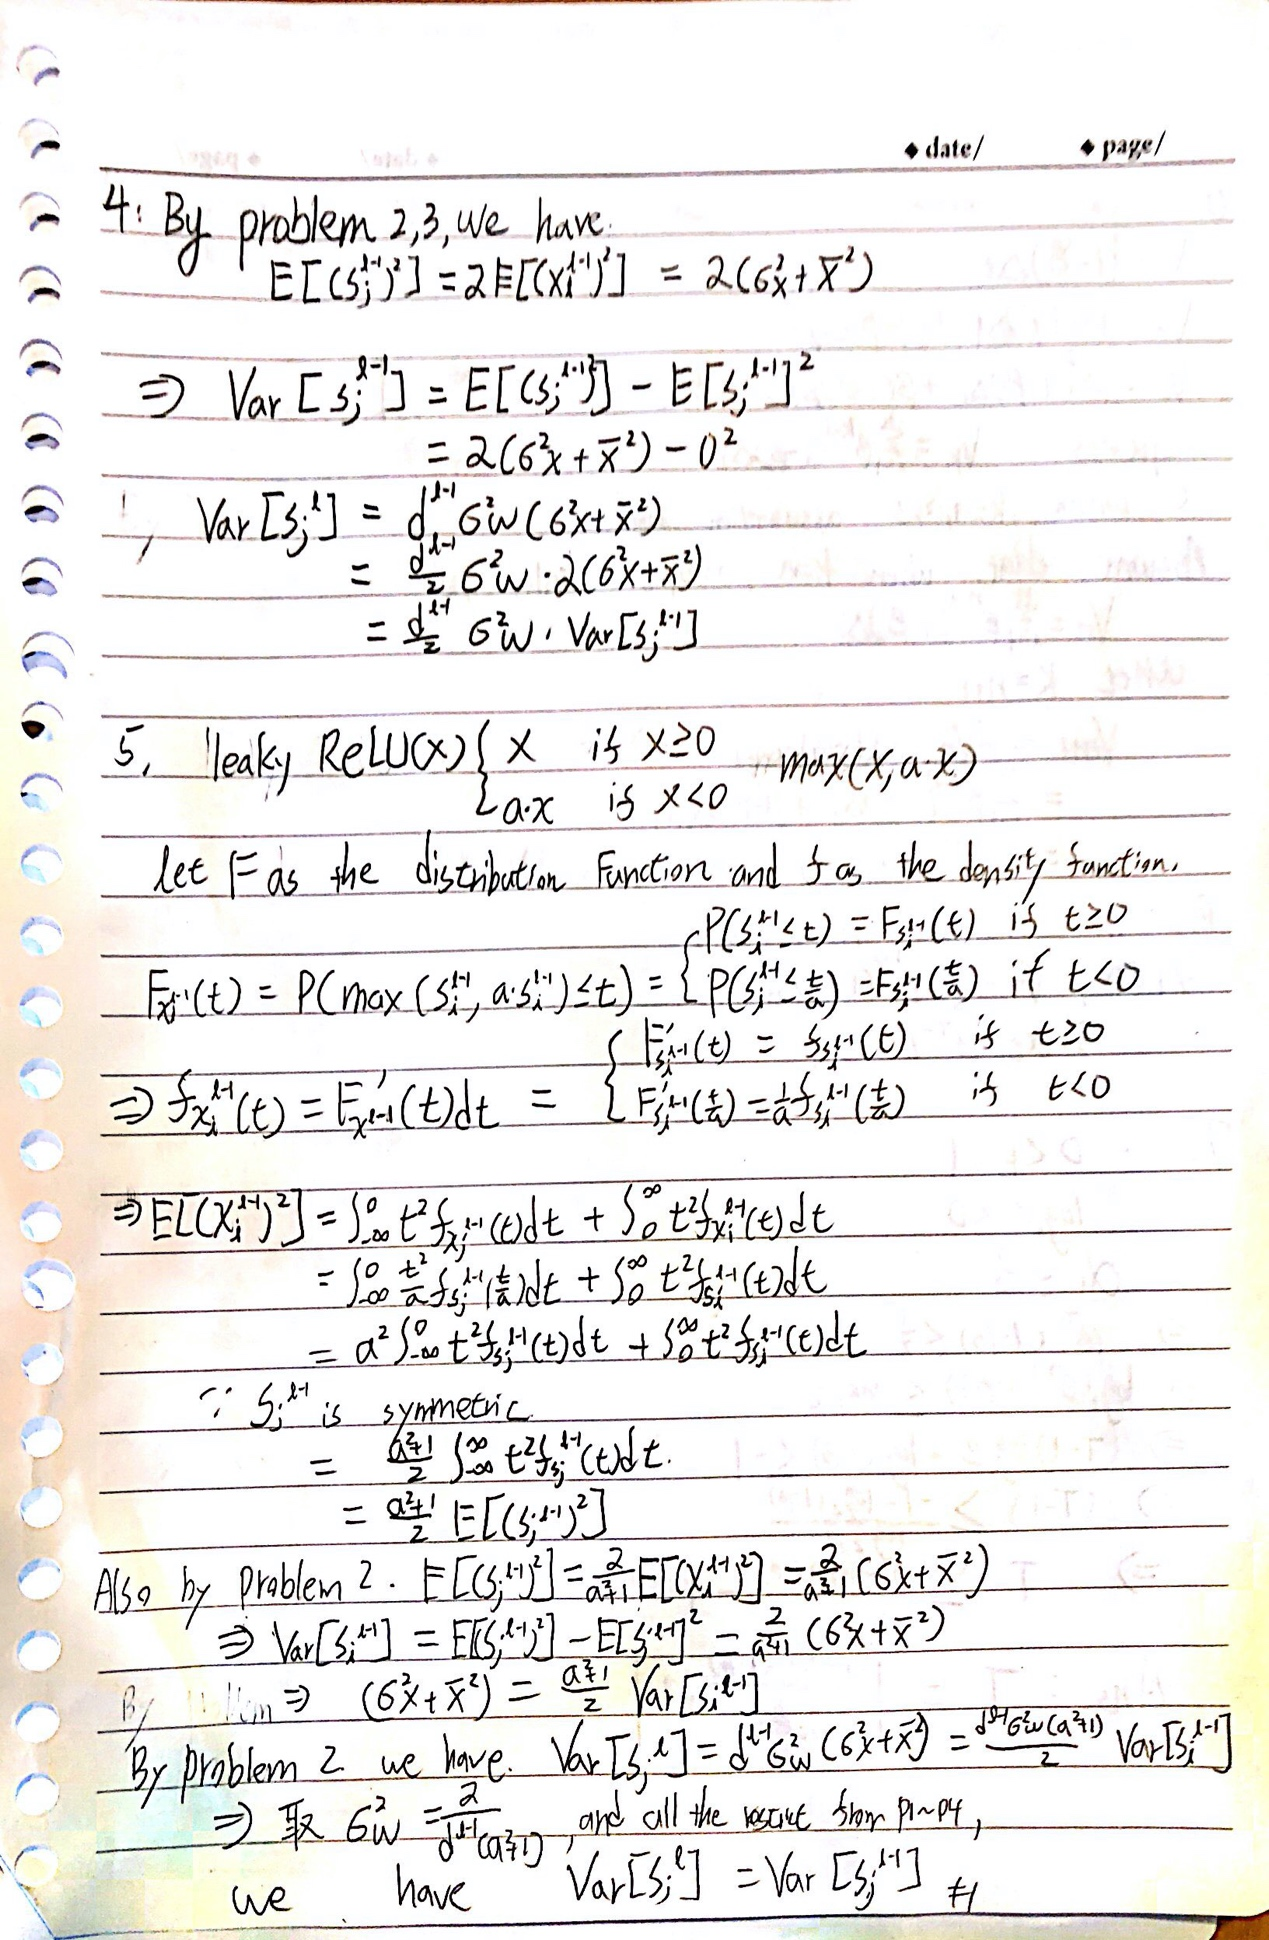 ◆ date/ ◆ page/
4: By problem 2,3, we have.
E[(s_j^{l-1})^2] = 2E[(x_i^{l-1})^2] = 2(σ_x^2 + x̄^2)
⇒ Var[s_j^{l-1}] = E[(s_j^{l-1})^2] - E[s_j^{l-1}]^2
= 2(σ^2x + x̄^2) - 0^2
, Var[s_j^l] = d^{l-1} σ^2w(σ^2x + x̄^2)
= d^{l-1}/2 σ^2w · 2(σ^2x + x̄^2)
= d^{l-1}/2 σ^2w · Var[s_j^{l-1}]
5. leaky ReLU(x) { x if x≥0
a·x if x<0 max(x, a·x)
let F as the distribution Function and f as the density function.
F_{x_i^{l-1}}(t) = P(max(s_i^{l-1}, a·s_i^{l-1}) ≤ t) = { P(s_i^{l-1} ≤ t) = F_{s_i^{l-1}}(t) if t≥0
P(s_i^{l-1} ≤ t/a) = F_{s_i^{l-1}}(t/a) if t<0
⇒ f_{x_i^{l-1}}(t) = F'_{x^{l-1}}(t)dt = { F'_{s_i^{l-1}}(t) = f_{s_i^{l-1}}(t) if t≥0
F'_{s_i^{l-1}}(t/a) = 1/a f_{s_i^{l-1}}(t/a) if t<0
⇒ E[(x_i^{l-1})^2] = ∫_{-∞}^0 t^2 f_{x_i^{l-1}}(t)dt + ∫_0^∞ t^2 f_{x_i^{l-1}}(t)dt
= ∫_{-∞}^0 t^2/a f_{s_j^{l-1}}(t/a)dt + ∫_0^∞ t^2 f_{s_i^{l-1}}(t)dt
= a^2 ∫_{-∞}^0 t^2 f_{s_j^{l-1}}(t)dt + ∫_0^∞ t^2 f_{s_j^{l-1}}(t)dt
∵ s_j^{l-1} is symmetric
= (a^2+1)/2 ∫_{-∞}^∞ t^2 f_{s_j^{l-1}}(t)dt.
= (a^2+1)/2 E[(s_j^{l-1})^2]
Also by problem 2. E[(s_j^{l-1})^2] = 2/(a^2+1) E[(x_i^{l-1})^2] = 2/(a^2+1) (σ_x^2 + x̄^2)
⇒ Var[s_i^{l-1}] = E[(s_j^{l-1})^2] - E[s_j^{l-1}]^2 = 2/(a^2+1) (σ^2x + x̄^2)
⇒ (σ^2x + x̄^2) = (a^2+1)/2 Var[s_i^{l-1}]
By problem 2 we have. Var[s_j^l] = d^{l-1}σ_w^2 (σ^2x + x̄^2) = d^{l-1}σ^2w(a^2+1)/2 Var[s_i^{l-1}]
⇒ 取 σ^2w = 2/(d^{l-1}(a^2+1)), and all the from p1~p4,
we have Var[s_j^l] = Var[s_j^{l-1}] #